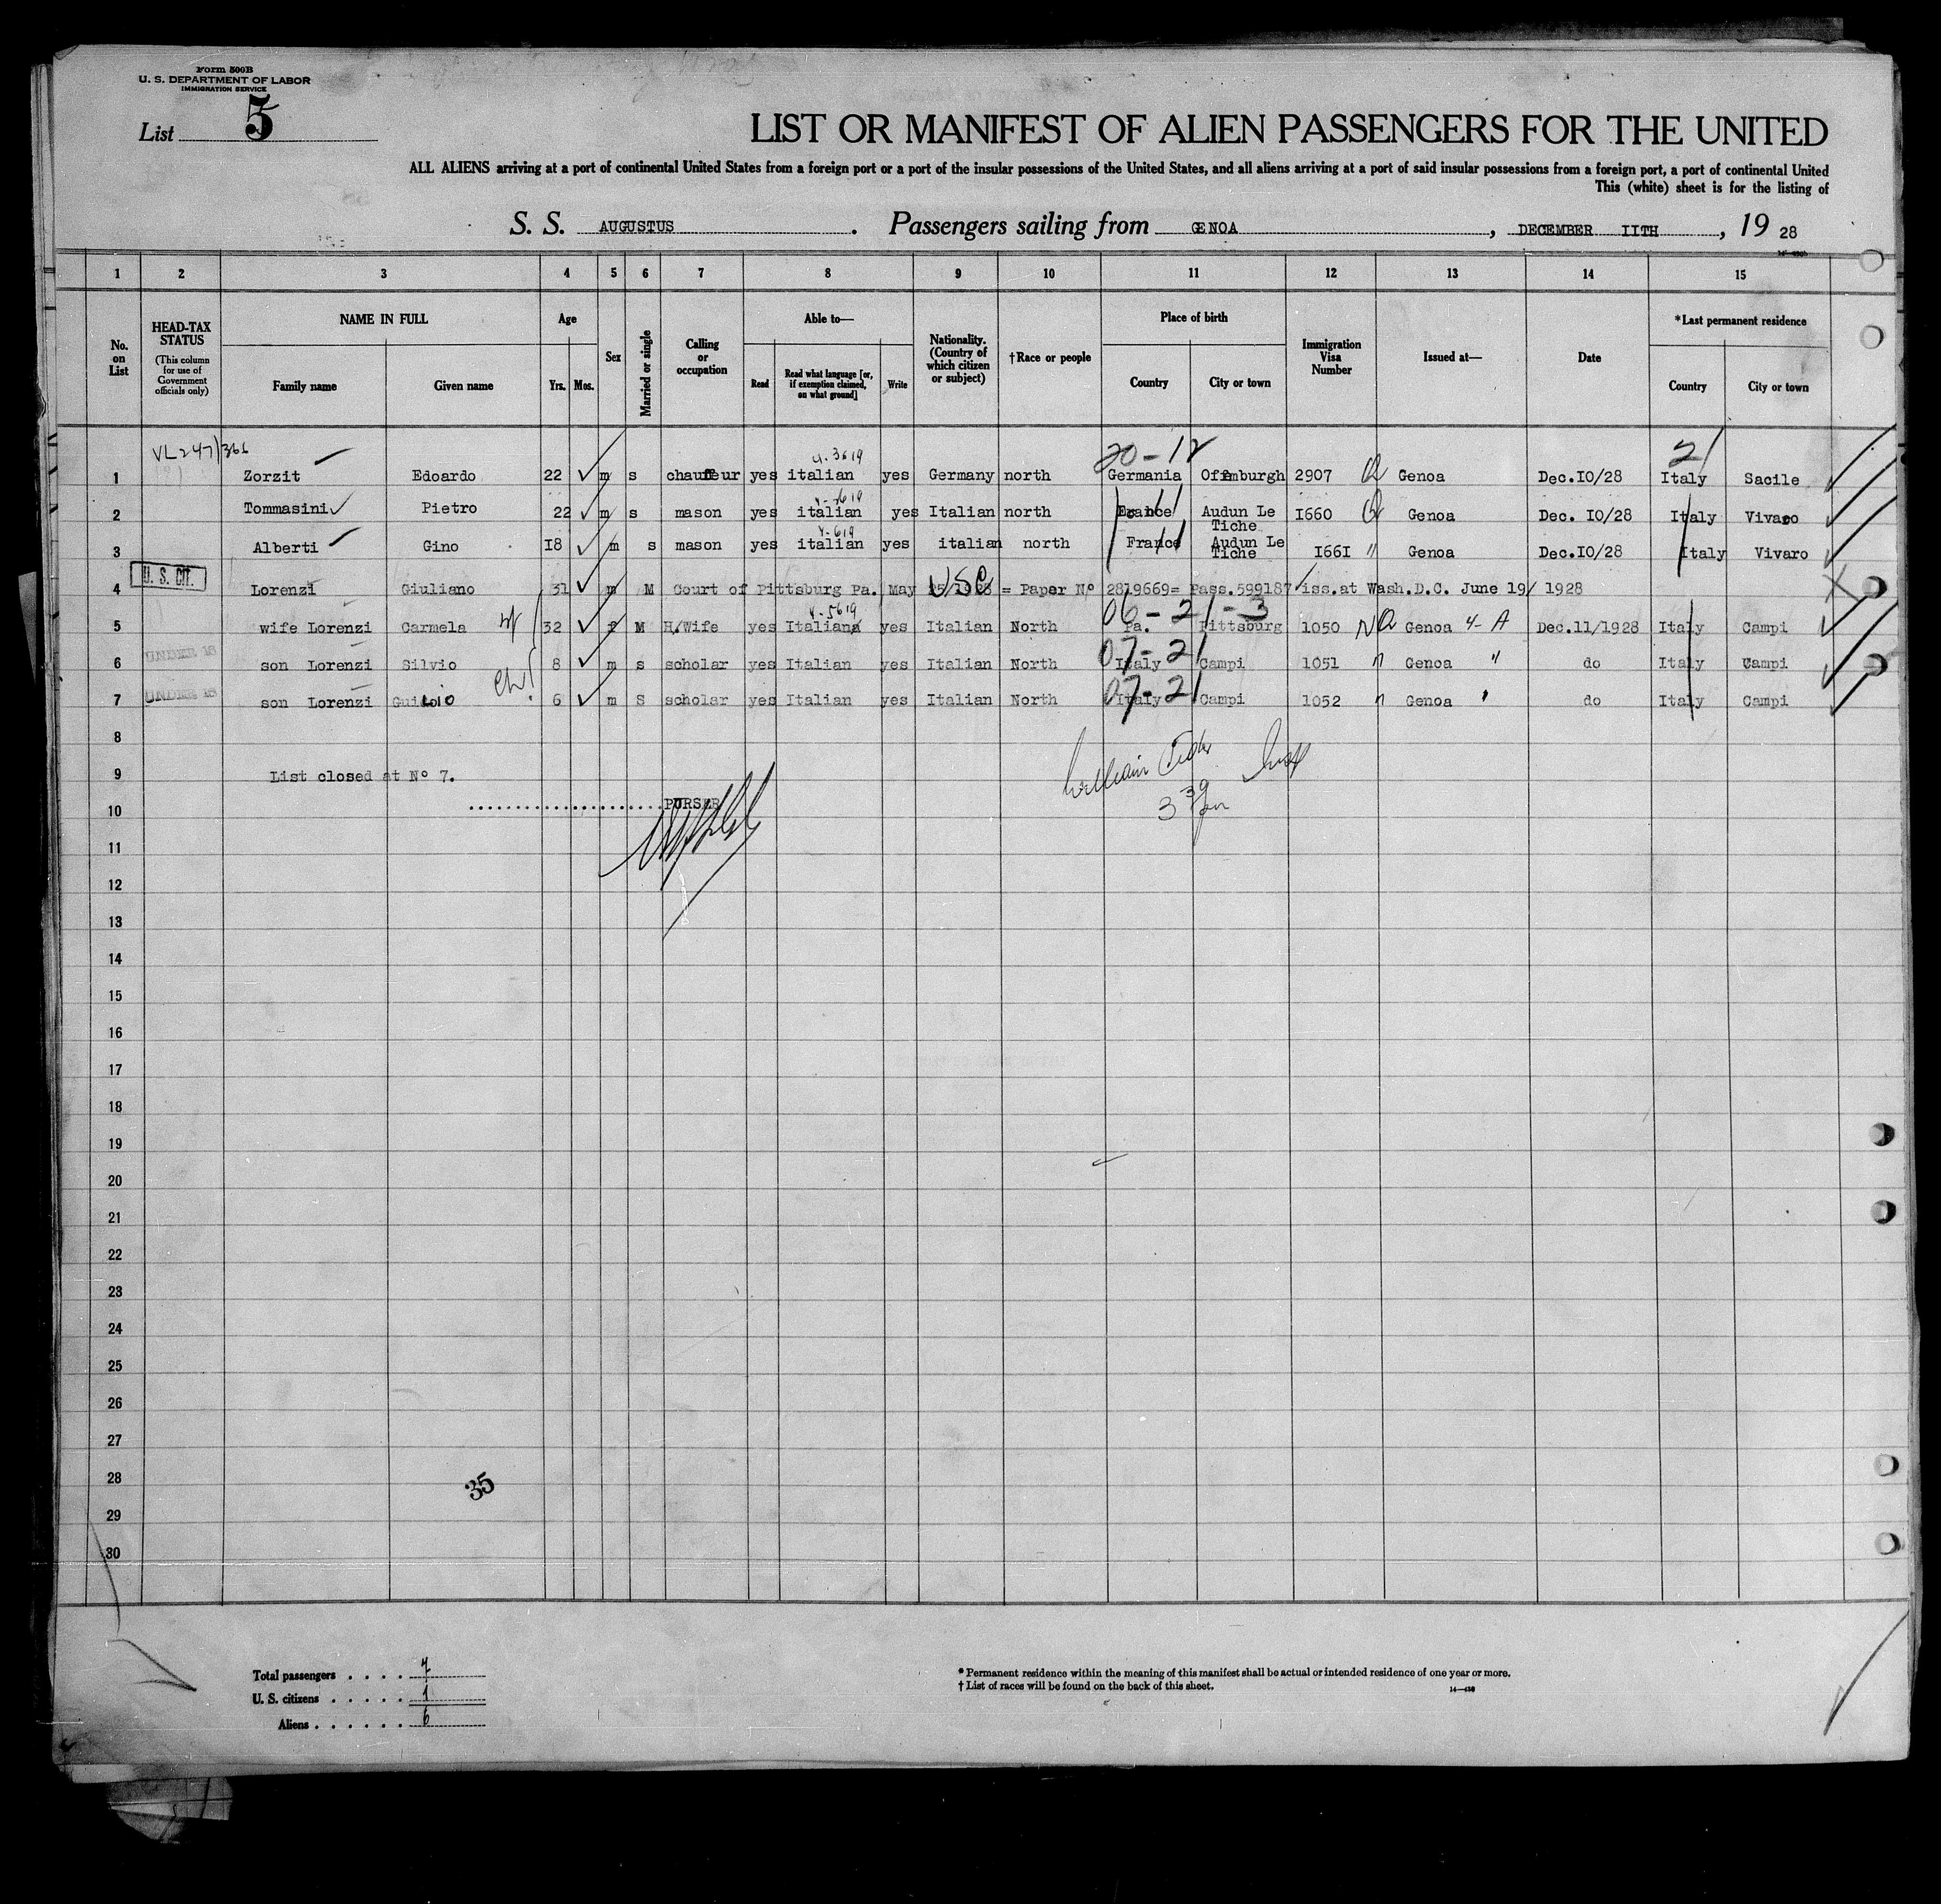 Form 500B
U. S. DEPARTMENT OF LABOR
IMMIGRATION SERVICE
List 5
LIST OR MANIFEST OF ALIEN PASSENGERS FOR THE UNITED
ALL ALIENS arriving at a port of continental United States from a foreign port or a port of the insular possessions of the United States, and all aliens arriving at a port of said insular possessions from a foreign port, a port of continental United
This (white) sheet is for the listing of
S. S. AUGUSTUS. Passengers sailing from GENOA, DECEMBER IITH, 19 28
1 2 3 4 5 6 7 8 9 10 11 12 13 14 15
No. on List
HEAD-TAX STATUS (This column for use of Government officials only)
NAME IN FULL Family name Given name
Age Yrs. Mos.
Sex
Married or single
Calling or occupation
Able to— Read Read what language [or, if exemption claimed, on what ground] Write
Nationality. (Country of which citizen or subject)
†Race or people
Place of birth Country City or town
Immigration Visa Number
Issued at—
Date
*Last permanent residence Country City or town
VL247/366 4.3619 20-12 21
1 Zorzit Edoardo 22 m s chauffeur yes italian yes Germany north Germania Offemburgh 2907 Genoa Dec.IO/28 Italy Sacile
2 Tommasini Pietro 22 m s mason yes italian yes Italian north France Audun Le Tiche I660 Genoa Dec. IO/28 Italy Vivaro
3 Alberti Gino I8 m s mason yes italian yes italian north France Audun Le Tiche I66I " Genoa Dec.IO/28 Italy Vivaro
U. S. CIT.
4 Lorenzi Giuliano 31 m M Court of Pittsburg Pa. May 25/1928 USC = Paper Nº 2819669= Pass.599187 iss.at Wash.D.C. June 19/ 1928
4-5619 06-21-3
5 wife Lorenzi Carmela wf 32 f M H.Wife yes Italian yes Italian North Pa. Pittsburg 1050 NQ Genoa 4-A Dec.11/1928 Italy Campi
UNDER 16 07-21
6 son Lorenzi Silvio 8 m s scholar yes Italian yes Italian North Italy Campi 1051 " Genoa " do Italy Campi
UNDER 16 ch 07-21
7 son Lorenzi Guido 6 m S scholar yes Italian yes Italian North Italy Campi 1052 " Genoa " do Italy Campi
8
9 List closed at Nº 7. William
10 PURSER 3 30
11
12
13
14
15
16
17
18
19
20
21
22
23
24
25
26
27
28 35
29
30
Total passengers . . . . 7
U. S. citizens . . . . . 1
Aliens . . . . . . 6
* Permanent residence within the meaning of this manifest shall be actual or intended residence of one year or more.
† List of races will be found on the back of this sheet.
14—430